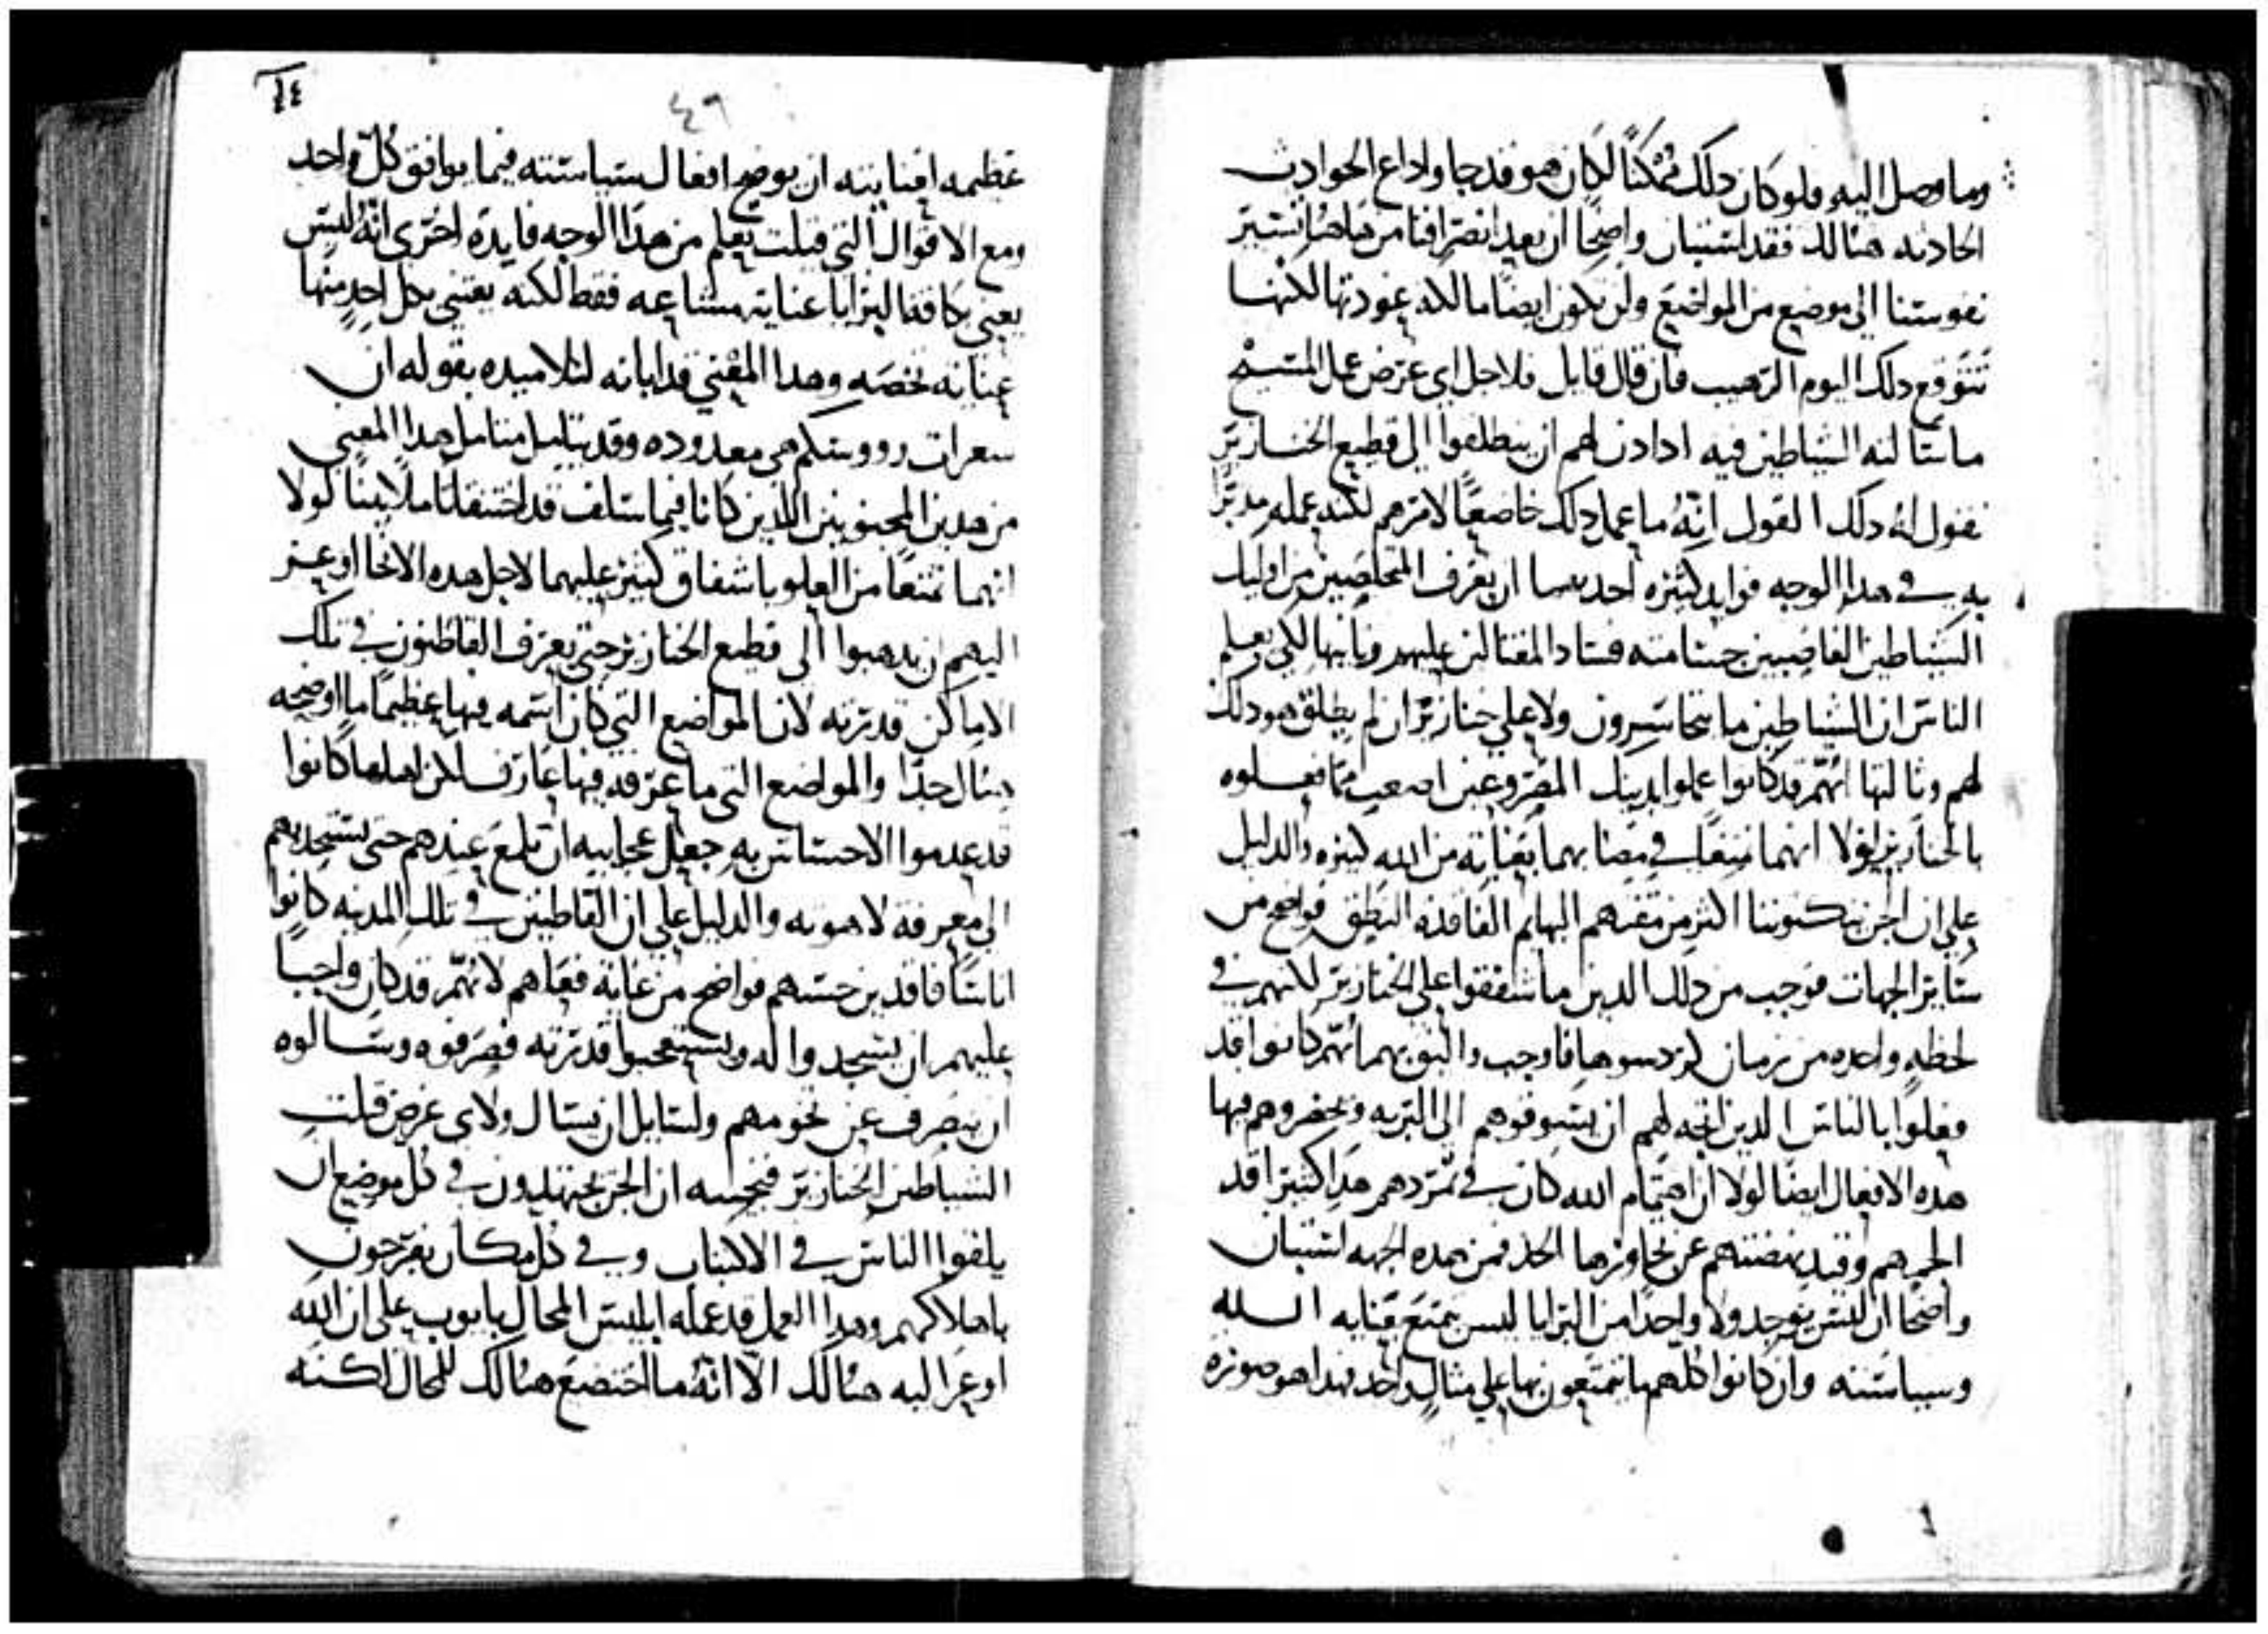 وما وصل اليه ولو كان دلك ممكنًا لكان هو قد جا واداع الحوادث
الحادثه هنالك فقد استبان واضحًا ان بعد انصرافنا من هاهنا تستتر
نفوسنا الي موضع من المواضع ولن يكون ايضًا مالكه عودتها لكنها
تتوقع دلك اليوم الرهيب فان قال قايل فلاجل اي غرض عمل المسيح
ما سالته الشياطين فيه ادادن لهم ان ينطلقوا الي قطيع الخنازير
نقول له دلك القول انّهُ ما عمل دلك خاضعًا لامرهم لكنه عمله مدبرًا
به في هدا الوجه فوايد كثيره احدها ان يعرف المتخلصين من اوليك
الشياطين الغاصبين جسامة فساد المغتالين عليهم وثانيها لكي يعلم
الناس ان الشياطين ما يتجاسرون ولا علي خنازير ان لم يطلق هو دلك
لهم وثالثها انهم قد كانوا عملوا بدينك المصروعين اصعب مما فعلوه
بالخنازير لولا انهما متعا في مصابهما بعناية من الله كثيره والدليل
علي ان الجن يمقتوننا اكثر من مقتهم البهايم الفاقده النطق فواضح من
ساير الجهات فوجب من دلك الدين ما شفقوا علي الخنازير لانهم في
لحظه واحده من زمان كردسوها فاوجب واليق بهما انهم كانوا قد
فعلوا بالناس الدين اتجه لهم ان يسوقوهم الي البريه ويحضروهم فيها
هده الافعال ايضًا لولا ان اهتمام الله كان في تمردهم هدا كثيرًا قد
الجمهم وقيد نهضتهم عن تجاوزها الحد فمن هده الجهه استبان
واضحًا ان ليس يوجد ولا واحدًا من البرايا ليس يتمتع بعنايه الله
وسياسته وان كانوا كلهم ما يتمتعون بها علي مثال واحد فهدا هو صوره
٤٩
٤٤
عظيمه لعنايته ان يوضح افعال سياسته فيما يوافق كلّ واحد
ومع الاقوال التي قيلت يعلم من هدا الوجه فايدة اخرى انّهُ ليس
يعني بكافة البرايا عنايه مشاعه فقط لكنه يعتني بكل احدٍ منها
عنايه تخصه وهدا المعني قد ابانه لتلاميده بقوله ان
شعرات رووسكم هي معدوده وقد يتامل متامل هدا المعني
من هدين المجنونين اللدين كانا فيما سلف قد اختنقا تاملًا بينًا لولا
انهما تمتعا من العلو باشفاق كثير عليهما لاجل هده الانحا اوعز
اليهم ان يدهبوا الي قطيع الخنازير حتي يعرف القاطنون في تلك
الاماكن قدرته لان المواضع التي كان اسمه فيها عظيمًا ما اوضحه
هنال جدًا والمواضع التي ما عرفه فيها عارف لان اهلها كانوا
قد عدموا الاحساس به جعل عجايبه ان تلمع عندهم حتي يستجدبهم
الي معرفة لاهوته والدليل علي ان القاطنين في تلك المدينه كانوا
اناسًا فاقدين حسهم فواضح من غاية فعلهم لانهم قد كان واجبًا
عليهم ان يسجدوا له ويستعجبوا قدرته فصرفوه وسالوه
ان ينصرف عن تخومهم ولسايل ان يسال ولاي غرض قتلت
الشياطين الخنازير فنجيبه ان الجن يجتهدون في كل موضع ان
يلقوا الناس في الاكتياب وفي كل مكان يفرحون
باهلاكهم وهدا العمل قد عمله ابليس المحال بايوب علي ان الله
اوعز اليه هنالك الا انّهُ ما اختضع هنالك للمحال لكنه